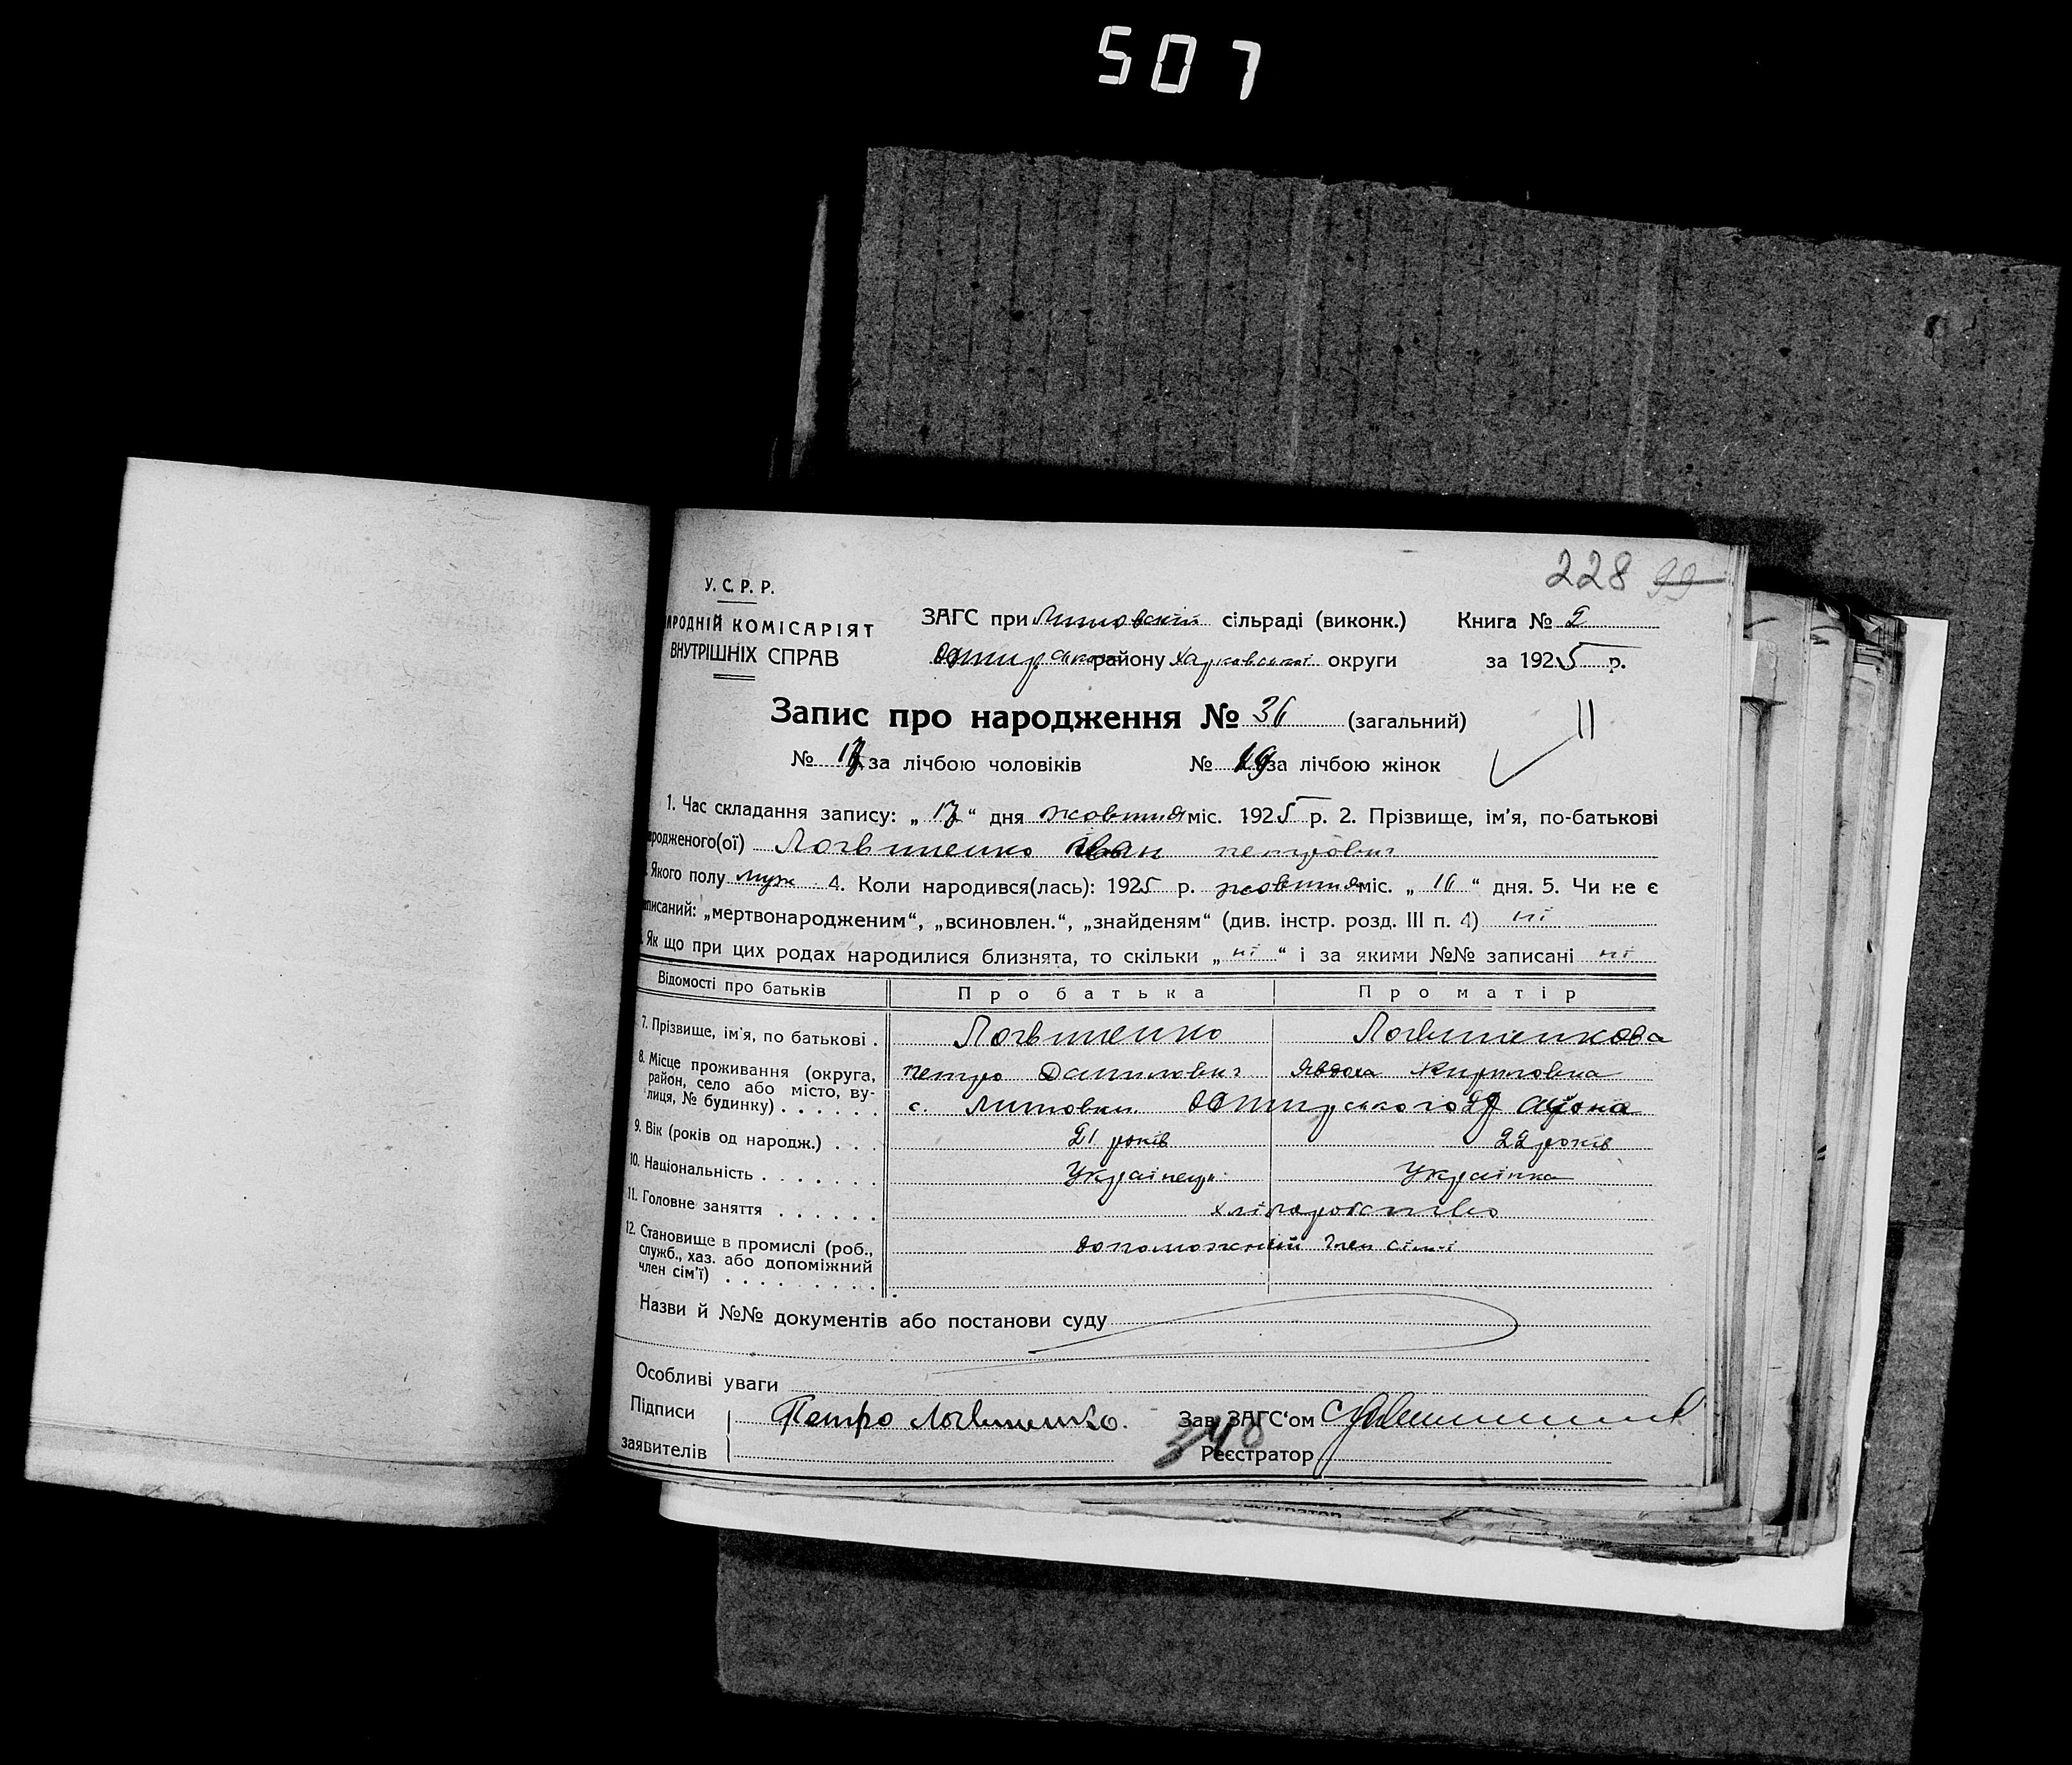 507
228 99
У. С. Р. Р.
РОДНІЙ КОМІСАРІЯТ
ВНУТРІШНІХ СПРАВ
ЗАГС при Литовскій сільраді (виконк.) Книга № 2
району Харковської округи за 1925 р.
Запис про народження № 36 (загальний)
№ 17 за лічбою чоловіків № 19 за лічбою жінок
1. Час складання запису: „ 17 “ дня жовтня міс. 1925 р. 2. Прізвище, ім'я, по-батькові
родженого(ої) Логвиненко Іван петрович
Якого полу муж 4. Коли народився(лась): 1925 р. жовтня міс. „ 16 “ дня. 5. Чи не є
писаний: „мертвонародженим“, „всиновлен.“, „знайденям“ (див. інстр. розд. III п. 4) ні
Як що при цих родах народилися близнята, то скільки „ ні “ і за якими №№ записані ні
Відомості про батьків Про батька Про матір
7. Прізвище, ім'я, по батькові . Логвиненко Логвиненкова
петро Данилович Явдоха Кириловна
8. Місце проживання (округа, район, село або місто, вулиця, № будинку) . . . . . . с. Литовки Охтирського району
9. Вік (років од народж.) . . . 21 років 22 років
10. Національність . . . . . . . Українець Українка
11. Головне заняття . . . . . . хліборобство
12. Становище в промислі (роб., служб., хаз. або допоміжний член сім'ї) . . . . . . . допоможний член сімї
Назви й №№ документів або постанови суду
Особливі уваги
Підписи Петро Логвиненко. Зав. ЗАГС'ом
348
заявителів Реєстратор